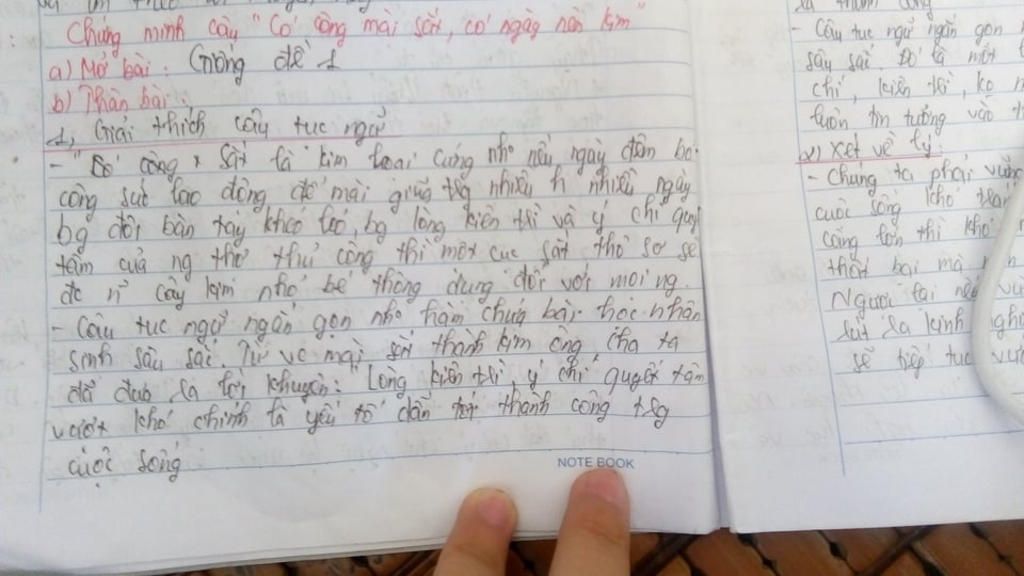 Chứng minh câu "Có công mài sắt, có ngày nên kim"
a) Mở bài: Giống đề 1
b) Thân bài:
1, Giải thích câu tục ngữ
- "Có công, sắt là kim loại cứng nhg nếu ngày đêm bỏ
công sức lao động để mài giũa tlg nhiều h nhiều ngày
bg đôi bàn tay khéo léo, bg lòng kiên trì và ý chí quyết
tâm của ng thợ thủ công thì một cục sắt thô sơ sẽ
đc n cây kim nhỏ bé thông dụng đối với mọi ng.
- Câu tục ngữ ngắn gọn nhg hàm chứa bài học nhân
sinh sâu sắc. Từ vc mài sắt thành kim ông cha ta
đã đưa ra lời khuyên: "Lòng kiên trì, ý chí quyết tâm
vượt khó chính là yếu tố dẫn tới thành công tlg
cuộc sống
NOTE BOOK
- Câu tục ngữ ngắn gọn
sâu sắc. Đó là một
chí, kiên trì, ko
luôn tin tưởng vào
2) Xét về lý:
- Chúng ta phải vững
cuộc sống khó
càng lớn thì khó
thất bại mà
Người lại nếu
rút ra kinh nghi
sẽ tiếp tục